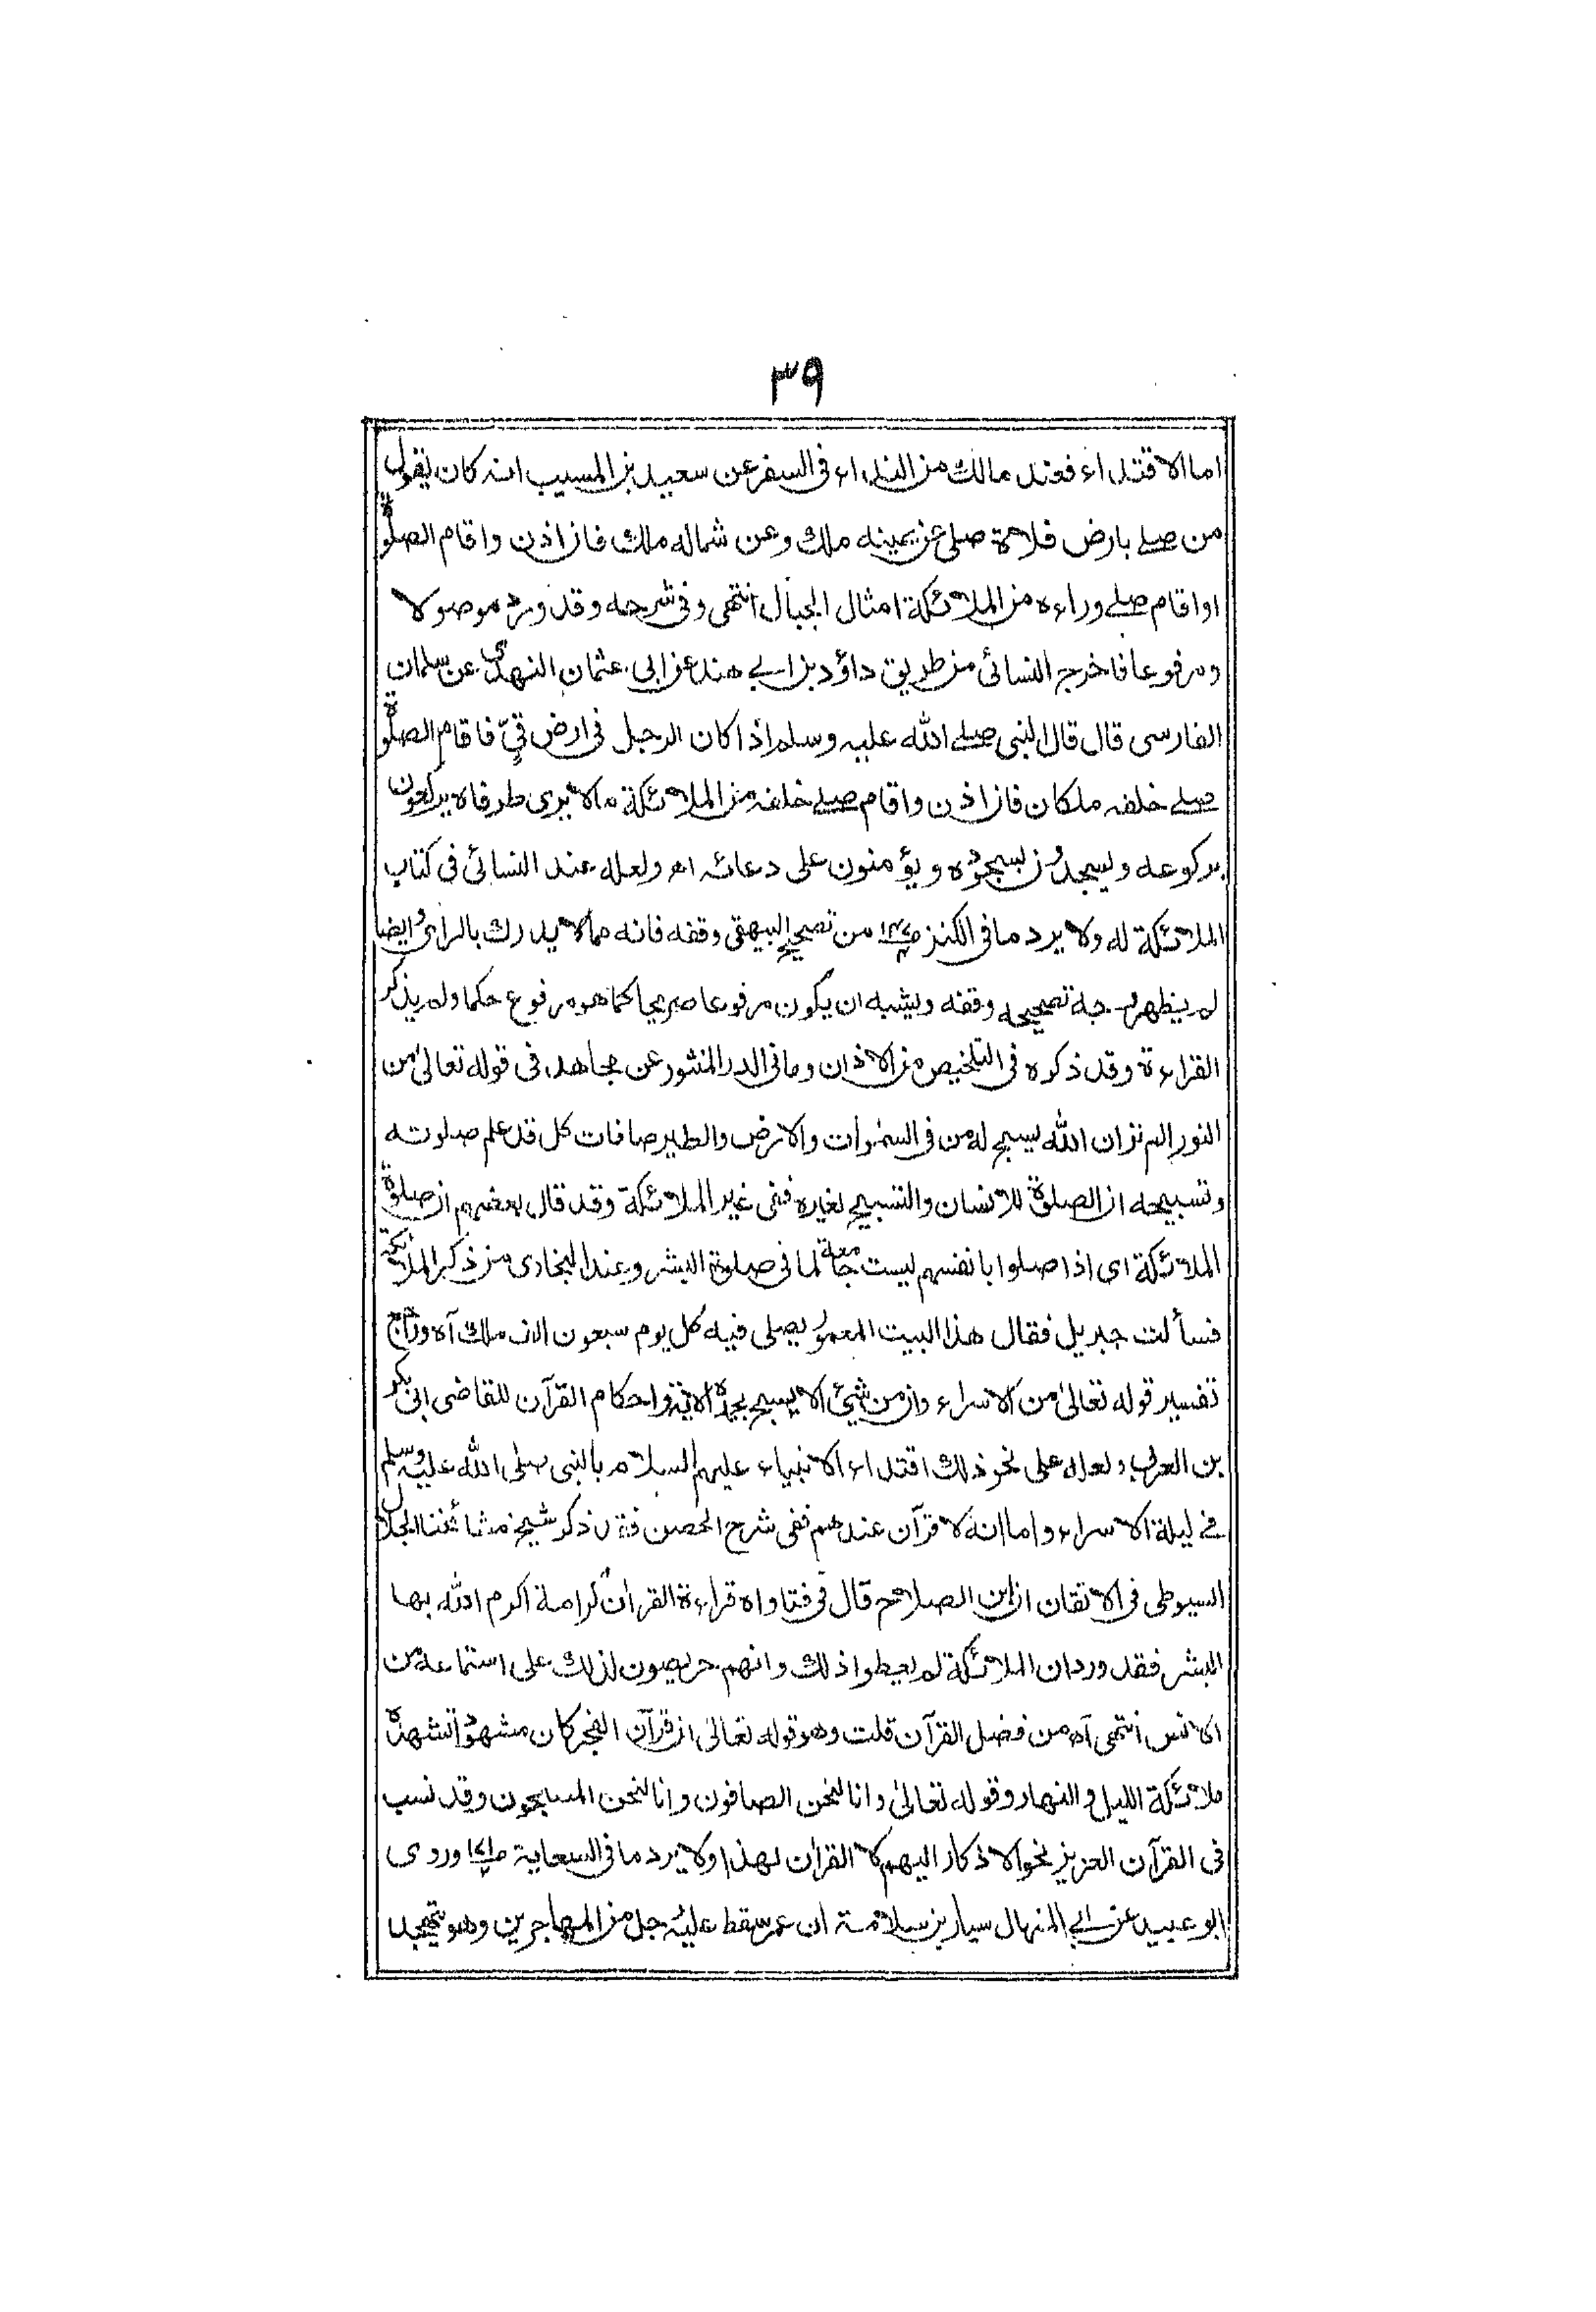 ٣٩
اما الاقتداء فعند مالك من النداء فى السفر عن سعيد بن المسيب انه كان يقول
من صلے بارض فلاة صلى عن يمينه ملك وعن شماله ملك فان اذن واقام الصلوٰة
او اقام صلے وراءه من الملائكة امثال الجبال انتهى وفى شرحه وقد ورد موصولا
ومرفوعا فاخرج النسائى من طريق داؤد بن ابے هند عن ابى عثمان النهدى عن سلمان
الفارسى قال قال النبى صلے الله عليه وسلم اذا كان الرجل فى ارض قىٍّ فاقام الصلوٰة
صلے خلفه ملكان فان اذن واقام صلے خلفه من الملائكة مالا يرى طرفاه يركعون
بركوعه ويسجدون بسجوده ويؤمنون على دعائه اه ولعله عند النسائى فى كتاب
الملائكة له ولا يرد ما فى الكنز من تصحيح البيهقى وقفه فانه مما لا يدرك بالراى وايضا
لم يظهر وجه تصحيحه وقفه ويشبه ان يكون مرفوعا صريحا كما هو مرفوع حكما ولم يذكر
القراءة وقد ذكره فى التلخيص من الاذان وما فى الدر المنثور عن مجاهد فى قوله تعالىٰ من
النور الم تر ان الله يسبح له من فى السمٰوات والارض والطير صافات كل قد علم صلوته
وتسبيحه ان الصلوة للانسان والتسبيح لغيره ففى غير الملائكة وقد قال بعضهم ان صلوة
الملائكة اى اذا صلوا بانفسهم ليست جامعة لما فى صلوة البشر وعند البخارى من ذكر الملائكة
فسألت جبريل فقال هذا البيت المعمور يصلى فيه كل يوم سبعون الف ملك آه وراجع
تفسير قوله تعالىٰ من الاسراء وان من شئ الا يسبح بحمده الآية واحكام القرآن للقاضى ابى بكر
بن العربى ولعله على نحو ذلك اقتداء الانبياء عليهم السلام بالنبى صلى الله عليه وسلم
فے ليلة الاسراء واما انه لا قرآن عندهم ففى شرح الحصن فقد ذكر شيخ مشائخنا الجلال
السيوطى فى الاتقان ان ابن الصلاح قال فى فتاواه قراءة القراٰن كرامة اكرم الله بها
البشر فقد ورد ان الملائكة لم يعطوا ذلك وانهم حريصون لذلك على استماعه من
الانس انتهى آه من فضل القرآن قلت وهو قوله تعالىٰ ان قرآن الفجر كان مشهودا تشهده
ملائكة الليل والنهار وقوله تعالىٰ وانا لنحن الصافون وانا لنحن المسبحون وقد نسب
فى القرآن العزيز نحو الاذكار اليهم لا القراٰن لهذا ولا يرد ما فى السعاية وروى
ابو عبيد عن ابے المنهال سيار بن سلامة ان عمر سقط عليه رجل من المهاجرين وهو يتهجد